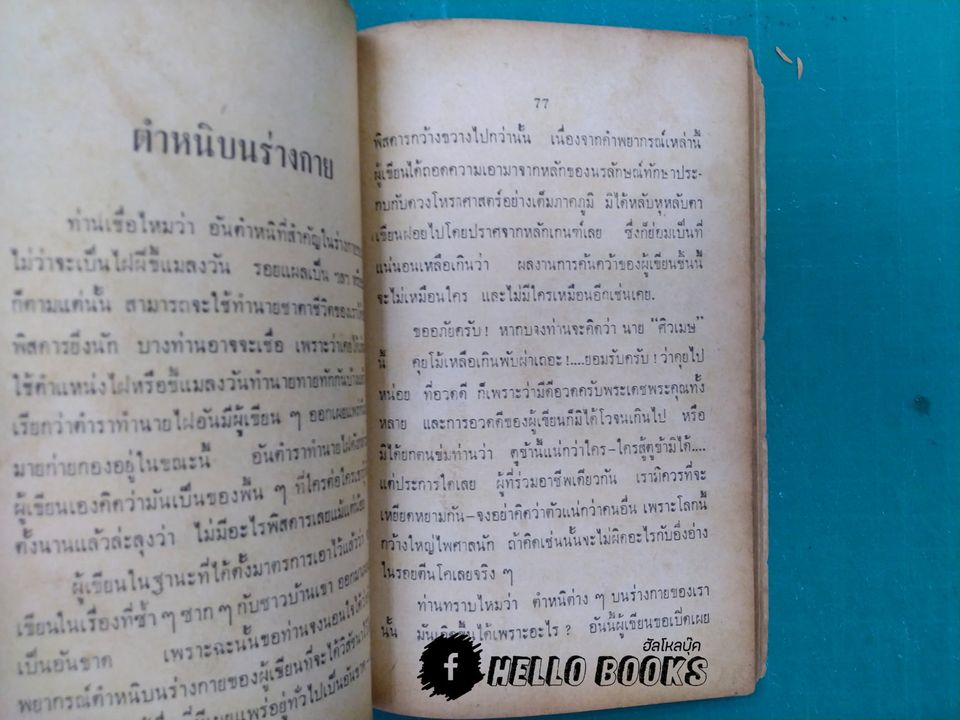 ตำหนิบนร่างกาย
ท่านเชื่อไหมว่า อันตำหนิที่สำคัญในร่างกาย
ไม่ว่าจะเป็นไฝผีขี้แมลงวัน รอยแผลเป็น
ก็ตามแต่นั้น สามารถจะใช้ทำนายชาตาชีวิตของเราได้
พิสดารยิ่งนัก บางท่านอาจจะเชื่อ เพราะว่าเคย
ใช้ตำแหน่งไฝหรือขี้แมลงวันทำนายทายทักกัน
เรียกว่าตำราทำนายไฝอันมีผู้เขียน ๆ ออกเผยแพร่
มายก่ายกองอยู่ในขณะนี้ อันตำราทำนายไฝ
ผู้เขียนเองคิดว่ามันเป็นของพื้น ๆ ที่ใครต่อใคร
ตั้งนานแล้วล่ะลุงว่า ไม่มีอะไรพิสดารเลยแม้แต่น้อย
ผู้เขียนในฐานะที่ได้ตั้งมาตรการเอาไว้แล้วว่า
เขียนในเรื่องที่ซ้ำ ๆ ซาก ๆ กับชาวบ้านเขา ออกมา
เป็นอันขาด เพราะฉะนั้นขอท่านจงนอนใจได้
พยากรณ์ตำหนิบนร่างกายของผู้เขียนที่จะได้วิสัชนา
แพร่อยู่ทั่วไปเป็นอันขาด
77
พิสดารกว้างขวางไปกว่านั้น เนื่องจากคำพยากรณ์เหล่านี้
ผู้เขียนได้ถอดความเอามาจากหลักของนรลักษณ์ทักษาประ-
กบกับดวงโหราศาสตร์อย่างเต็มภาคภูมิ มิได้หลับหูหลับตา
เขียนฝอยไปโดยปราศจากหลักเกนฑ์เลย ซึ่งก็ย่อมเป็นที่
แน่นอนเหลือเกินว่า ผลงานการค้นคว้าของผู้เขียนชิ้นนี้
จะไม่เหมือนใคร และไม่มีใครเหมือนอีกเช่นเคย.
ขออภัยครับ! หากบจงท่านจะคิดว่า นาย “ศิวเมษ”
นี้ คุยโม้เหลือเกินพับผ่าเถอะ!....ยอมรับครับ! ว่าคุยไป
หน่อย ที่อวดดี ก็เพราะว่ามีดีอวดครับพระเดชพระคุณทั้ง
หลาย และการอวดดีของผู้เขียนก็มิได้โวจนเกินไป หรือ
มิได้ยกตนข่มท่านว่า ตูข้านี้แน่กว่าใคร-ใครสู้ตูข้ามิได้....
แต่ประการใดเลย ผู้ที่ร่วมอาชีพเดียวกัน เรามิควรที่จะ
เหยียดหยามกัน-จงอย่าคิดว่าตัวแน่กว่าคนอื่น เพราะโลกนี้
กว้างใหญ่ไพศาลนัก ถ้าคิดเช่นนั้นจะไม่ผิดอะไรกับอึ่งอ่าง
ในรอยตีนโคเลยจริง ๆ
ท่านทราบไหมว่า ตำหนิต่าง ๆ บนร่างกายของเรา
นั้น มันเกิดขึ้นได้เพราะอะไร? อันนี้ผู้เขียนขอเปิดเผย
ฮัลโหลบุ๊ค
f HELLO BOOKS